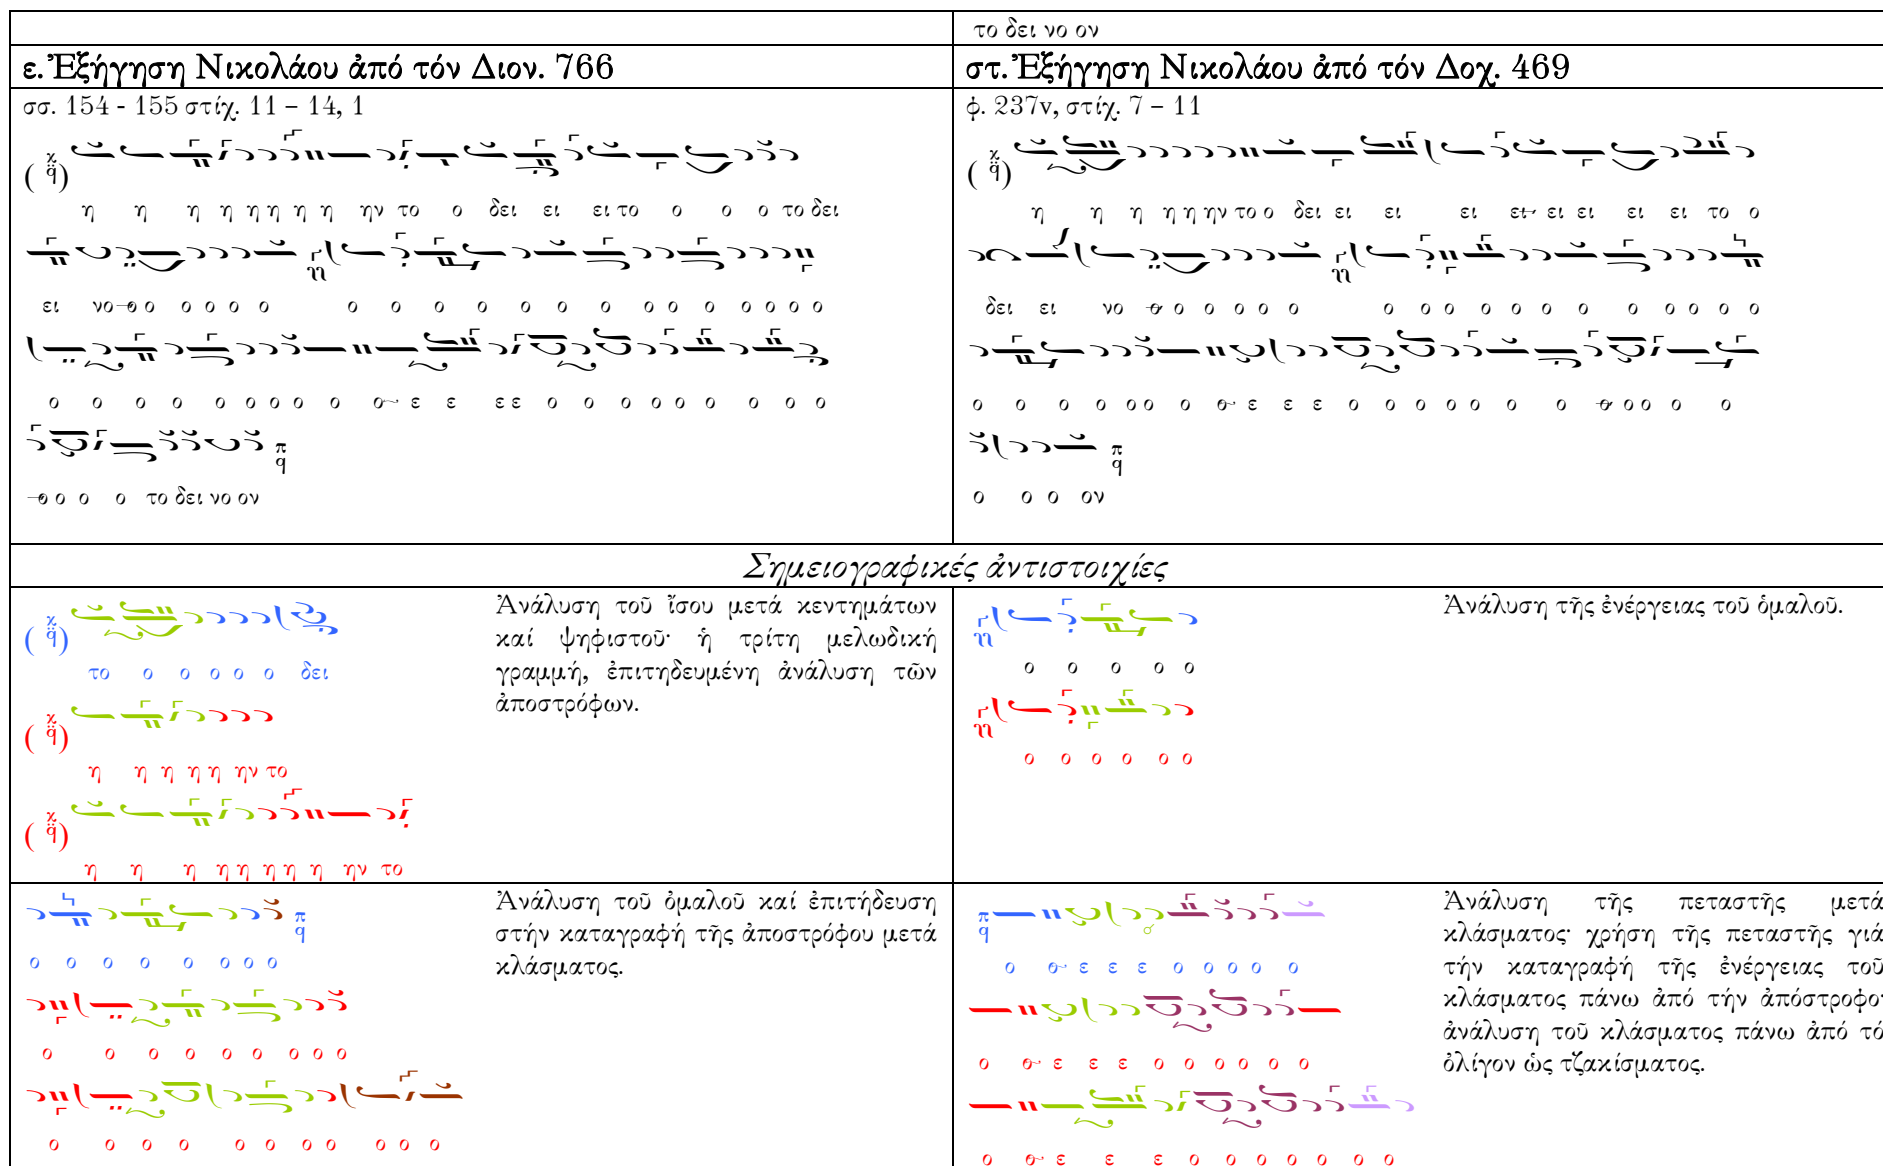 το δει νο ον
ε. Ἐξήγηση Νικολάου ἀπό τόν Διον. 766
στ. Ἐξήγηση Νικολάου ἀπό τόν Δοχ. 469
σσ. 154 - 155 στίχ. 11 – 14, 1
η η η η η η η η ην το ο δει ει ει το ο ο ο το δει
ει νο ο ο ο ο ο ο ο ο ο ο ο ο ο ο ο ο ο ο ο ο
ο ο ο ο ο ο ο ο ο ο ο ε ε ε ε ο ο ο ο ο ο ο ο ο
ο ο ο ο το δει νο ον
φ. 237v, στίχ. 7 – 11
η η η η η ην το ο δει ει ει ει ει ει ει ει ει το ο
δει ει νο ο ο ο ο ο ο ο ο ο ο ο ο ο ο ο ο ο ο
ο ο ο ο ο ο ο ο ε ε ε ο ο ο ο ο ο ο ο ο ο ο ο ο
ο ο ο ον
Σημειογραφικές ἀντιστοιχίες
το ο ο ο ο ο δει
η η η η η ην το
η η η η η η η η ην το
Ἀνάλυση τοῦ ἴσου μετά κεντημάτων
καί ψηφιστοῦ· ἡ τρίτη μελωδική
γραμμή, ἐπιτηδευμένη ἀνάλυση τῶν
ἀποστρόφων.
ο ο ο ο ο
ο ο ο ο ο ο
Ἀνάλυση τῆς ἐνέργειας τοῦ ὁμαλοῦ.
ο ο ο ο ο ο ο ο
ο ο ο ο ο ο ο ο ο
ο ο ο ο ο ο ο ο ο ο ο
Ἀνάλυση τοῦ ὁμαλοῦ καί ἐπιτήδευση
στήν καταγραφή τῆς ἀποστρόφου μετά
κλάσματος.
ο ο ε ε ε ο ο ο ο ο
ο ο ε ε ε ο ο ο ο ο ο
ο ο ε ε ε ο ο ο ο ο ο ο
Ἀνάλυση τῆς πεταστῆς μετά
κλάσματος· χρήση τῆς πεταστῆς γιά
τήν καταγραφή τῆς ἐνέργειας τοῦ
κλάσματος πάνω ἀπό τήν ἀπόστροφο·
ἀνάλυση τοῦ κλάσματος πάνω ἀπό τό
ὀλίγον ὡς τζακίσματος.